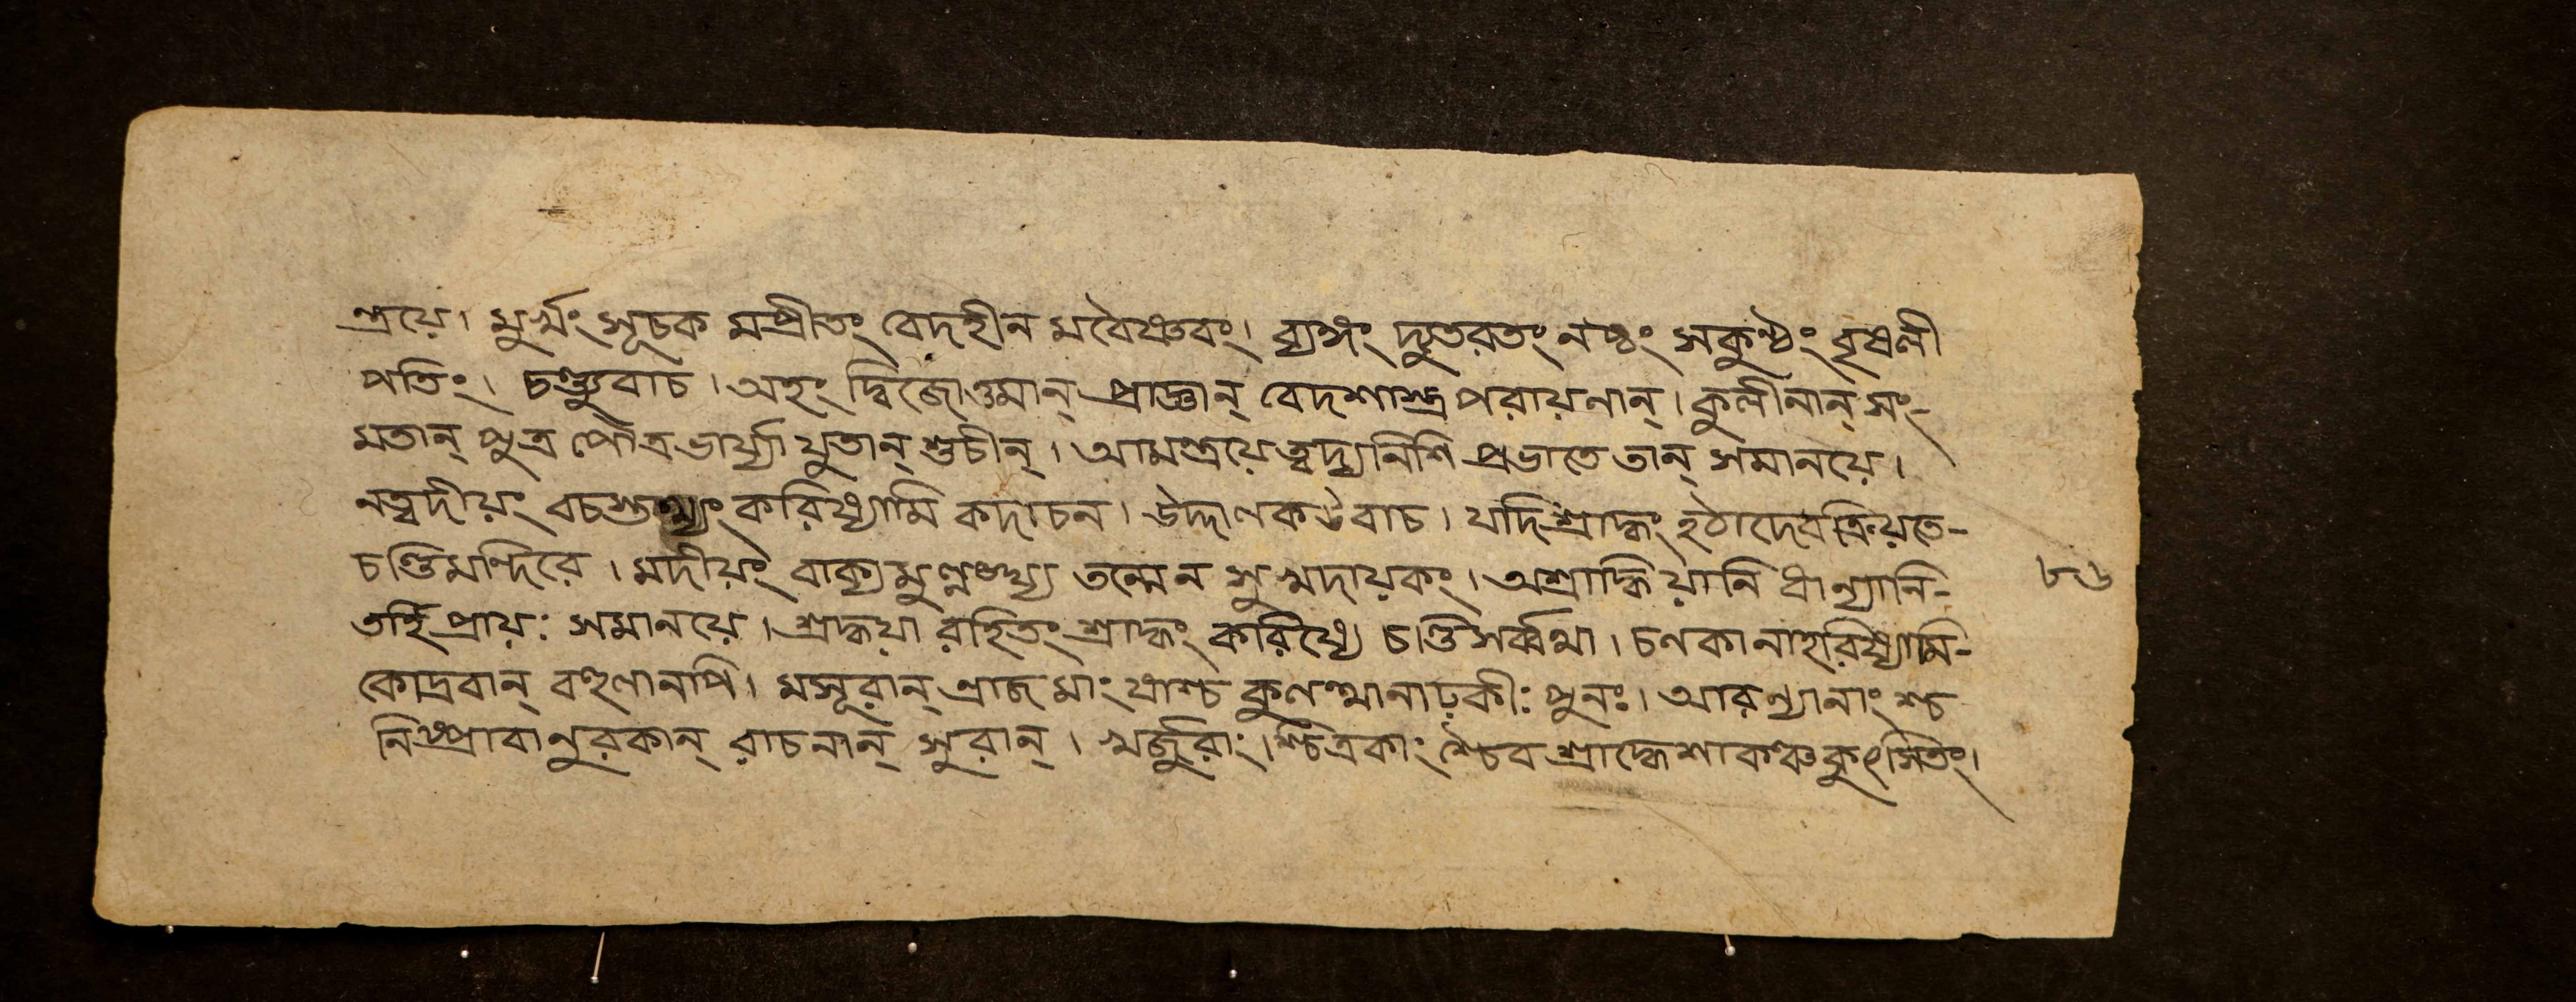 ন্ত্রয়ে। মুর্খং সূচক মপ্রীতং বেদহীন মবৈষ্ণবং। ব্যঙ্গং দ্যুতরতং নষ্টং সকুণ্ঠং বৃষলী
পতিং। চণ্ড্যুবাচ। অহং দ্বিজোত্তমান্ প্রাজ্ঞান্ বেদশাস্ত্র পরায়নান্। কুলীনান্ সং-
মতান্ পুত্র পৌত্র ভার্য্যা যুতান্ শুচীন্। আমন্ত্রয়ে ত্বদ্য নিশি প্রভাতে তান্ সমানয়ে।
নত্বদীয়ং বচস্তথ্যং করিষ্যামি কদাচন। উদ্দালক উবাচ। যদি শ্রাদ্ধং হঠাদেব ক্রিয়তে-
চণ্ডি মন্দিরে। মদীয়ং বাক্য মুল্লঙ্ঘ্য তন্মে ন সুখদায়কং। অশ্রাদ্ধিয়ানি ধান্যানি-
তর্হি প্রায়ঃ সমানয়ে। শ্রদ্ধয়া রহিতং শ্রাদ্ধং করিষ্যে চণ্ডি সর্ব্বথা। চণকানাহরিষ্যামি-
কোদ্রবান্ বহুলানপি। মসূরান্ রাজ মাংষাশ্চ কুলত্থানাঢ়কীঃ পুনঃ। আরন্যানাং শ্চ
নিষ্প্রাবানুরকান্ রাচনান্ সুরান্। খর্জুরাং।শ্চিত্রকাং শ্চৈব শ্রাদ্ধে শাকঞ্চ কুৎসিতং।
৮৬